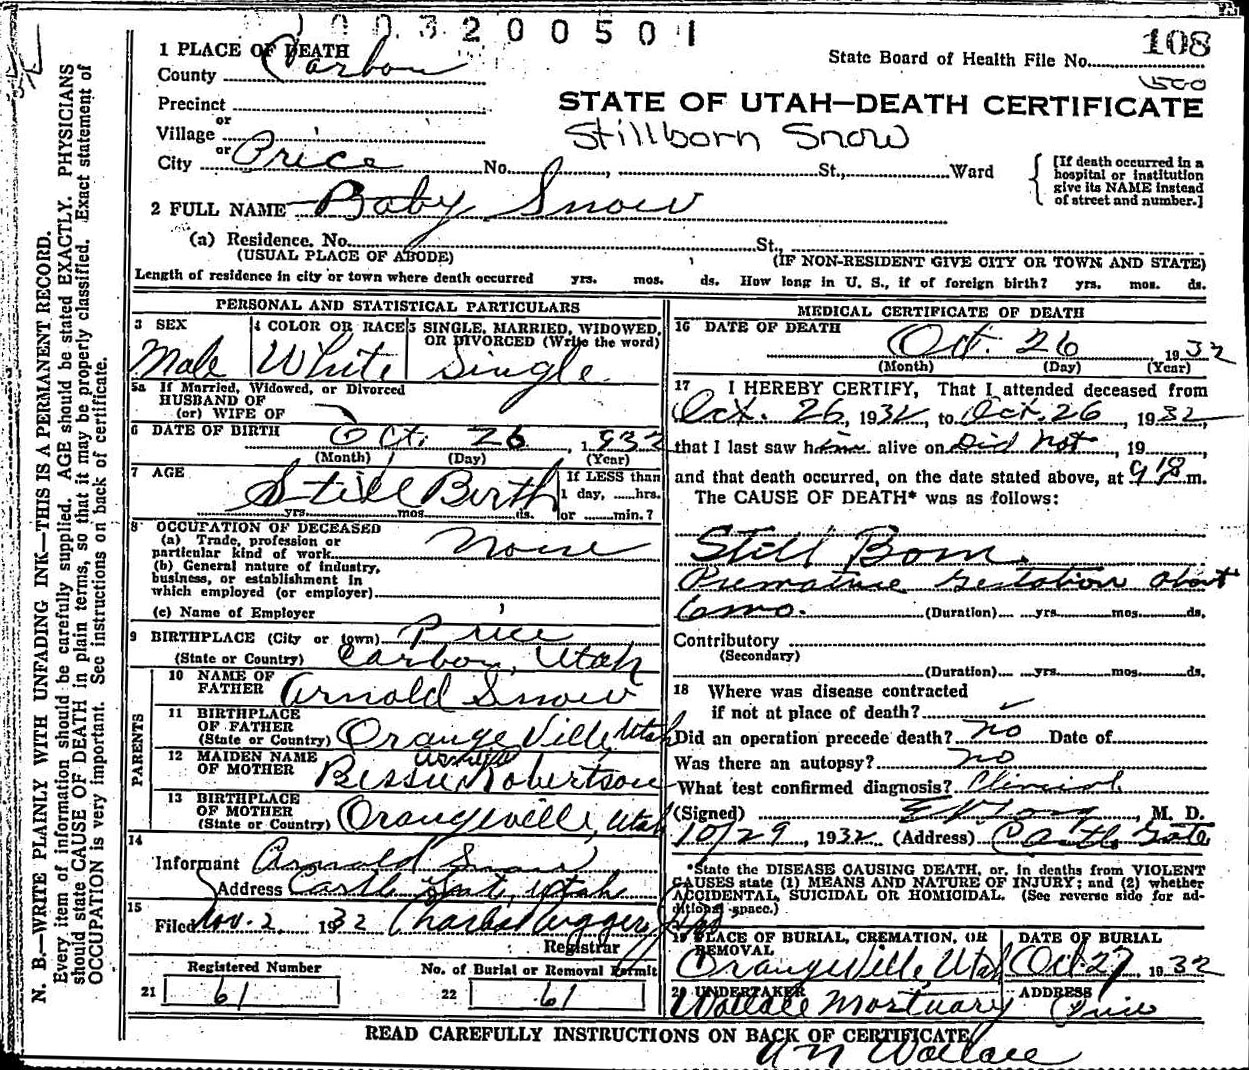 003200501
1 PLACE OF DEATH
County Carbon
State Board of Health File No. 108
Precinct
or
Village
or
City Price No. , St., Ward
STATE OF UTAH—DEATH CERTIFICATE
Stillborn Snow
[If death occurred in a
hospital or institution
give its NAME instead
of street and number.]
2 FULL NAME Baby Snow
(a) Residence. No. St.,
(USUAL PLACE OF ABODE) (IF NON-RESIDENT GIVE CITY OR TOWN AND STATE)
Length of residence in city or town where death occurred yrs. mos. ds. How long in U. S., if of foreign birth? yrs. mos. ds.
PERSONAL AND STATISTICAL PARTICULARS
3 SEX
Male
4 COLOR OR RACE
White
5 SINGLE, MARRIED, WIDOWED,
OR DIVORCED (Write the word)
Single
5a If Married, Widowed, or Divorced
HUSBAND OF
(or) WIFE OF
6 DATE OF BIRTH Oct. 26, 1932
(Month) (Day) (Year)
7 AGE
Still Birth
yrs. mos. ds.
If LESS than
1 day, hrs.
or min.?
8 OCCUPATION OF DECEASED
(a) Trade, profession or
particular kind of work None
(b) General nature of industry,
business, or establishment in
which employed (or employer)
(c) Name of Employer
9 BIRTHPLACE (City or town) Price
(State or Country) Carbon, Utah
PARENTS
10 NAME OF
FATHER Arnold Snow
11 BIRTHPLACE
OF FATHER
(State or Country) Orangeville Utah
12 MAIDEN NAME
OF MOTHER Bessie Robertson
13 BIRTHPLACE
OF MOTHER
(State or Country) Orangeville, Utah
14
Informant Arnold Snow
Address Castle Gate, Utah
15
Filed Nov. 2 1932
Registrar
Registered Number
21 61
No. of Burial or Removal Permit
22 61
MEDICAL CERTIFICATE OF DEATH
16 DATE OF DEATH
Oct. 26 1932
(Month) (Day) (Year)
17 I HEREBY CERTIFY, That I attended deceased from
Oct. 26, 1932, to Oct. 26, 1932,
that I last saw him alive on Did not, 19
and that death occurred, on the date stated above, at 9 m.
The CAUSE OF DEATH* was as follows:
Still Born.
Premature Gestation about
6 mo. (Duration) yrs. mos. ds.
Contributory
(Secondary)
(Duration) yrs. mos. ds.
18 Where was disease contracted
if not at place of death?
Did an operation precede death? no Date of
Was there an autopsy? no
What test confirmed diagnosis? Clinical
(Signed) , M. D.
10/29, 1932 (Address) Castle Gate
*State the DISEASE CAUSING DEATH, or, in deaths from VIOLENT
CAUSES state (1) MEANS AND NATURE OF INJURY; and (2) whether
ACCIDENTAL, SUICIDAL OR HOMICIDAL. (See reverse side for ad-
ditional space.)
19 PLACE OF BURIAL, CREMATION, OR
REMOVAL
Orangeville, Utah
DATE OF BURIAL
Oct. 27, 1932
20 UNDERTAKER
Wallace Mortuary
ADDRESS
Price
READ CAREFULLY INSTRUCTIONS ON BACK OF CERTIFICATE
Wallace
N. B.—WRITE PLAINLY WITH UNFADING INK—THIS IS A PERMANENT RECORD.
Every item of information should be carefully supplied. AGE should be stated EXACTLY. PHYSICIANS
should state CAUSE OF DEATH in plain terms, so that it may be properly classified. Exact statement of
OCCUPATION is very important. See instructions on back of certificate.